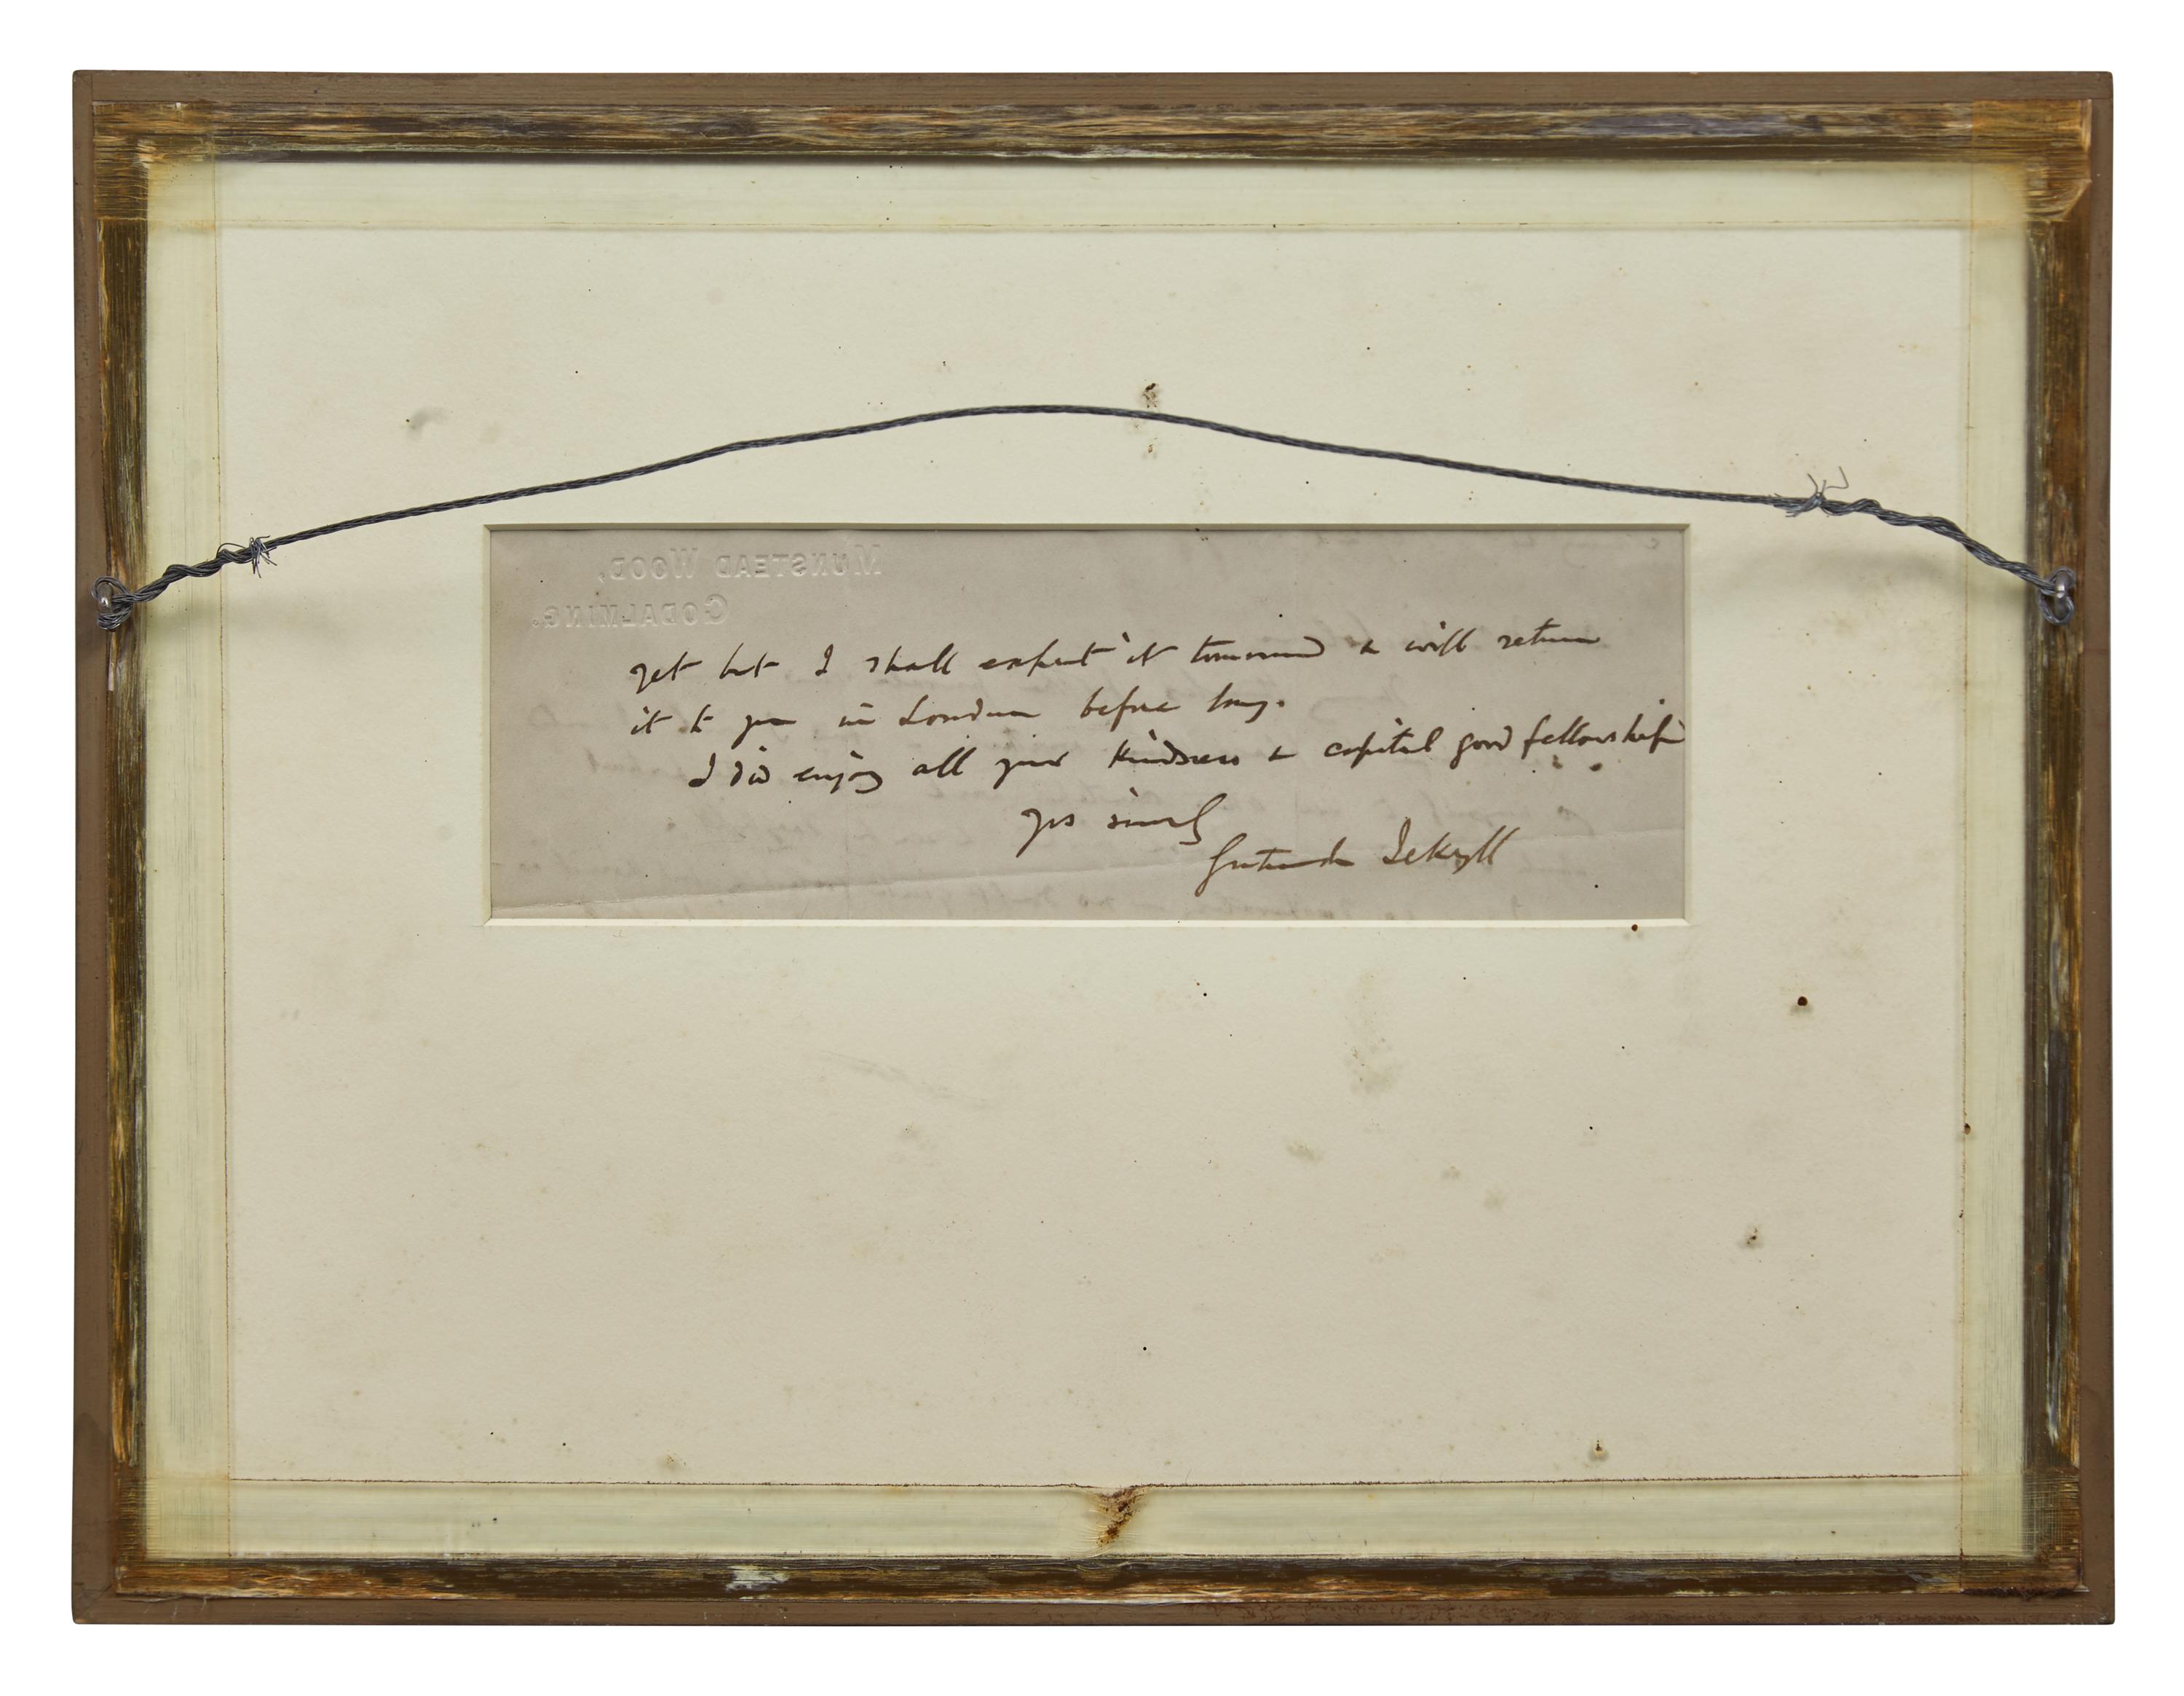 MUNSTEAD WOOD,
GODALMING.
yet but I shall expect it tomorrow & will return
it to you in London before long.
I did enjoy all your kindness & capital good fellowship
yrs sincly
Gertrude Jekyll